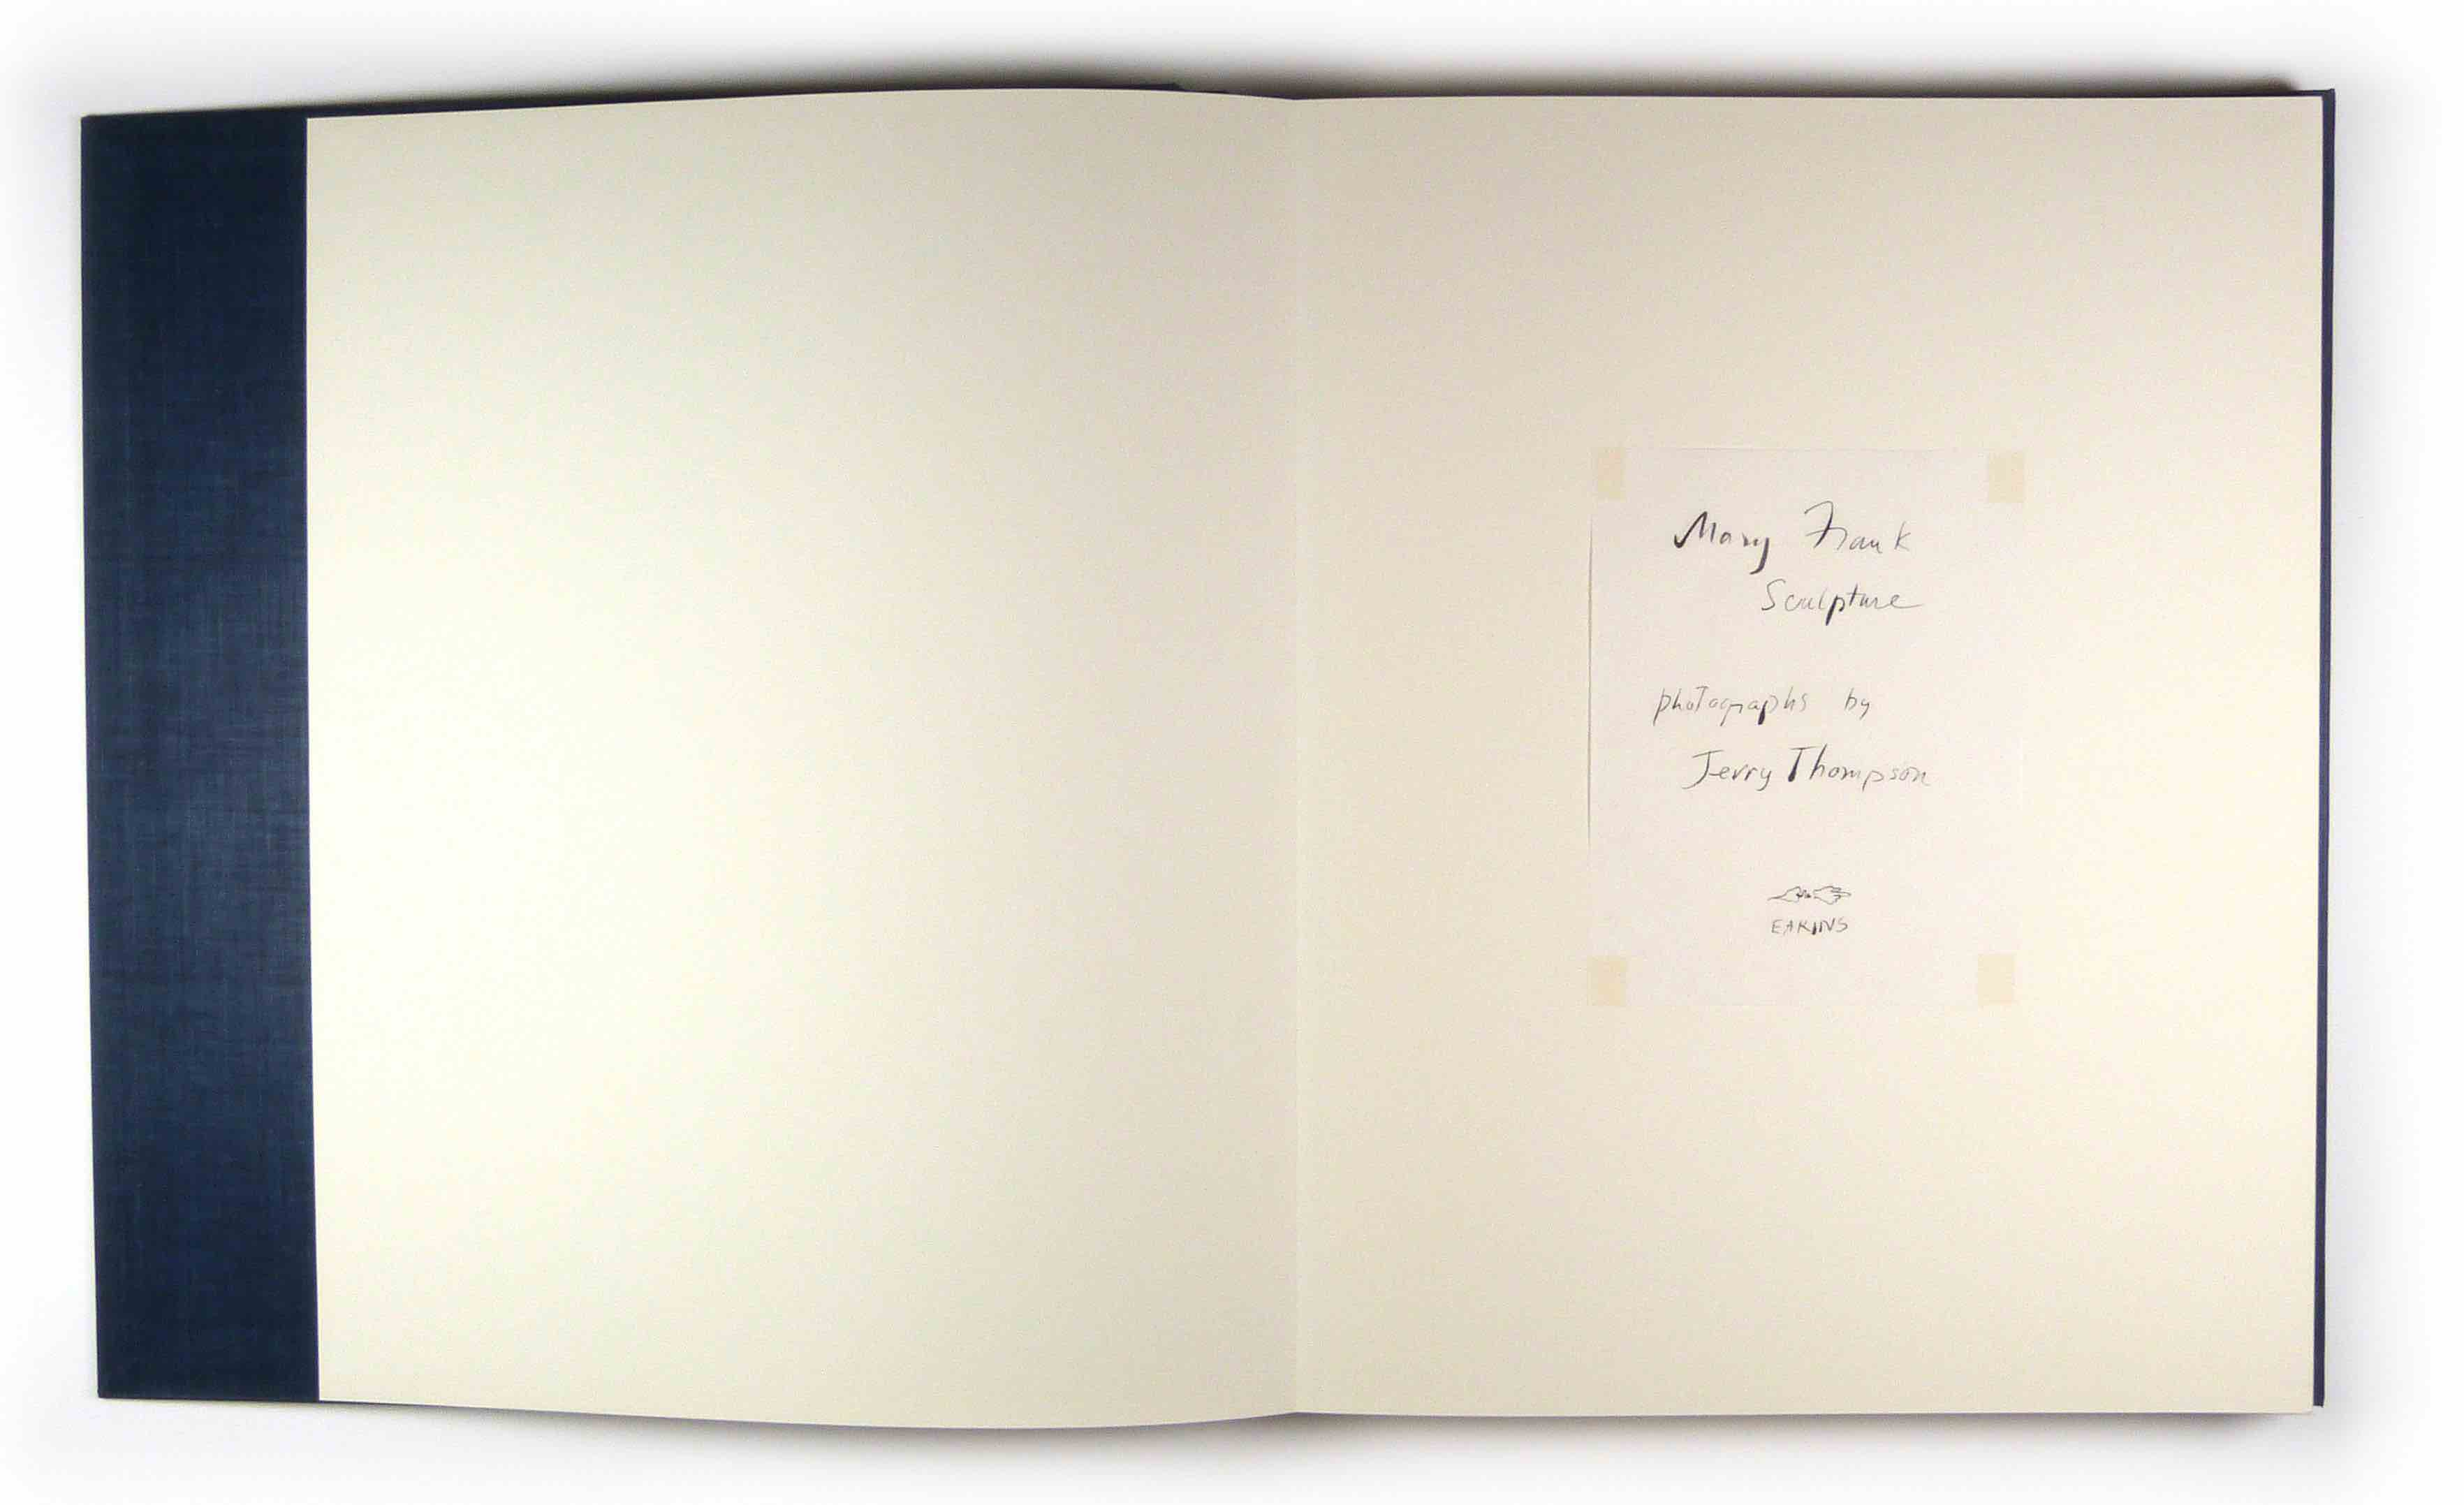 Mary Frank
Sculpture
photographs by
Jerry Thompson
EAKINS